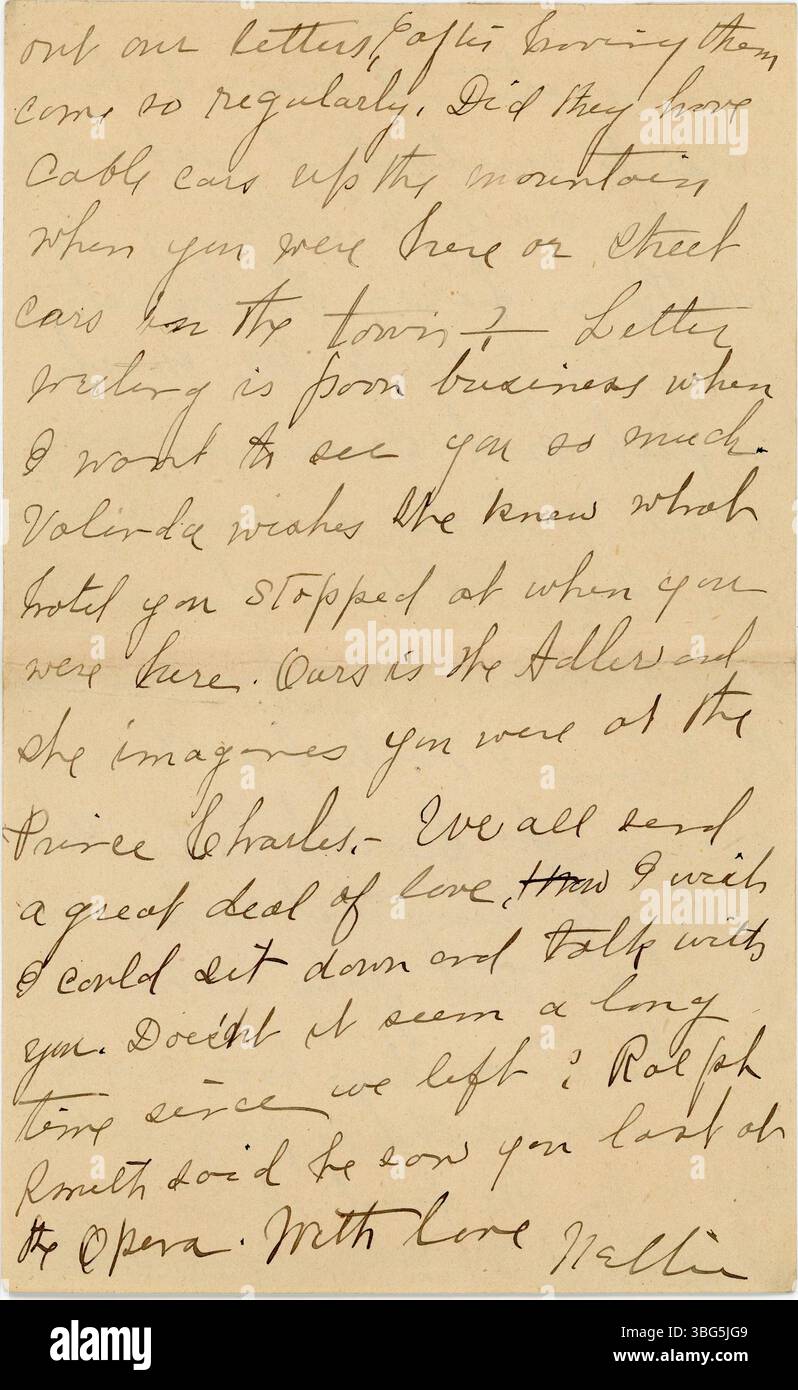 out our letters, & after having them
come so regularly. Did they have
Cable cars up the mountain
when you were here or street
cars in the town? — Letter
writing is poor business when
I want to see you so much.
Valinda wishes she knew what
hotel you stopped at when you
were here. Ours is the Adler and
she imagines you were at the
Prince Charles. – We all send
a great deal of love, I wish
I could sit down and talk with
you. Does'nt it seem a long
time since we left? Ralph
Smith said he saw you last at
the Opera. With love Nellie
alamy
alamy
alamy
a
a
a
alamy
Image ID: 3BG5JG9
www.alamy.com